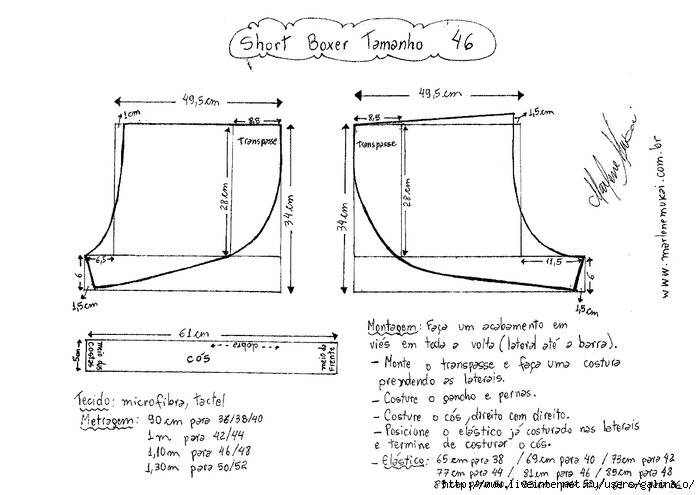 Short Boxer Tamanho 46
49,5cm
1cm
8,5
Transpasse
28cm
34cm
6,5
6
1,5cm
49,5cm
1,5cm
8,5
Transpasse
28cm
34cm
11,5
6
1,5cm
Marlene Mukai
www.marlenemukai.com.br
61cm
5cm
meio das
Costas
dobra
cós
meio da
Frente
Tecido: microfibra, tactel
Metragem: 90cm para 36/38/40
1m para 42/44
1,10m para 46/48
1,30m para 50/52
Montagem: Faça um acabamento em
viés em toda a volta (lateral até a barra).
- Monte o transpasse e faça uma costura
prendendo as laterais.
- Costure o gancho e pernas.
- Costure o cós, direito com direito.
- Posicione o elástico já costurado nas laterais
e termine de costurar o cós.
- Elástico: 65cm para 38 / 69cm para 40 / 73cm para 42
77cm para 44 / 81cm para 46 / 85cm para 48